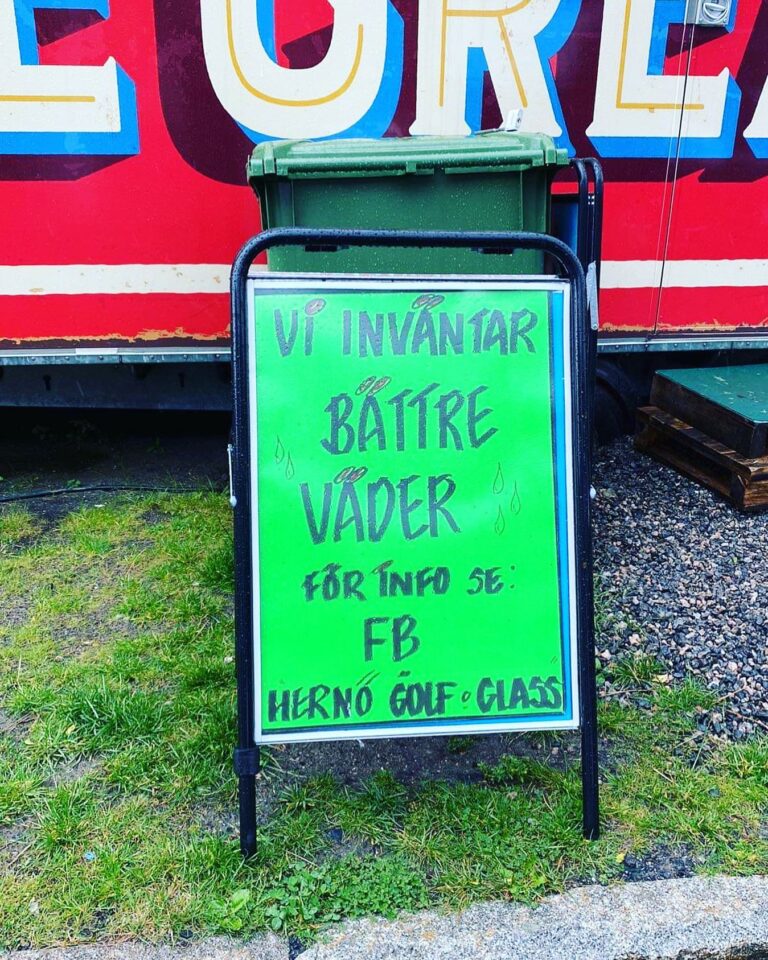 E CRE
VI INVÄNTAR
BÄTTRE
VÄDER
FÖR INFO SE:
FB
HERNÖ GOLF o GLASS